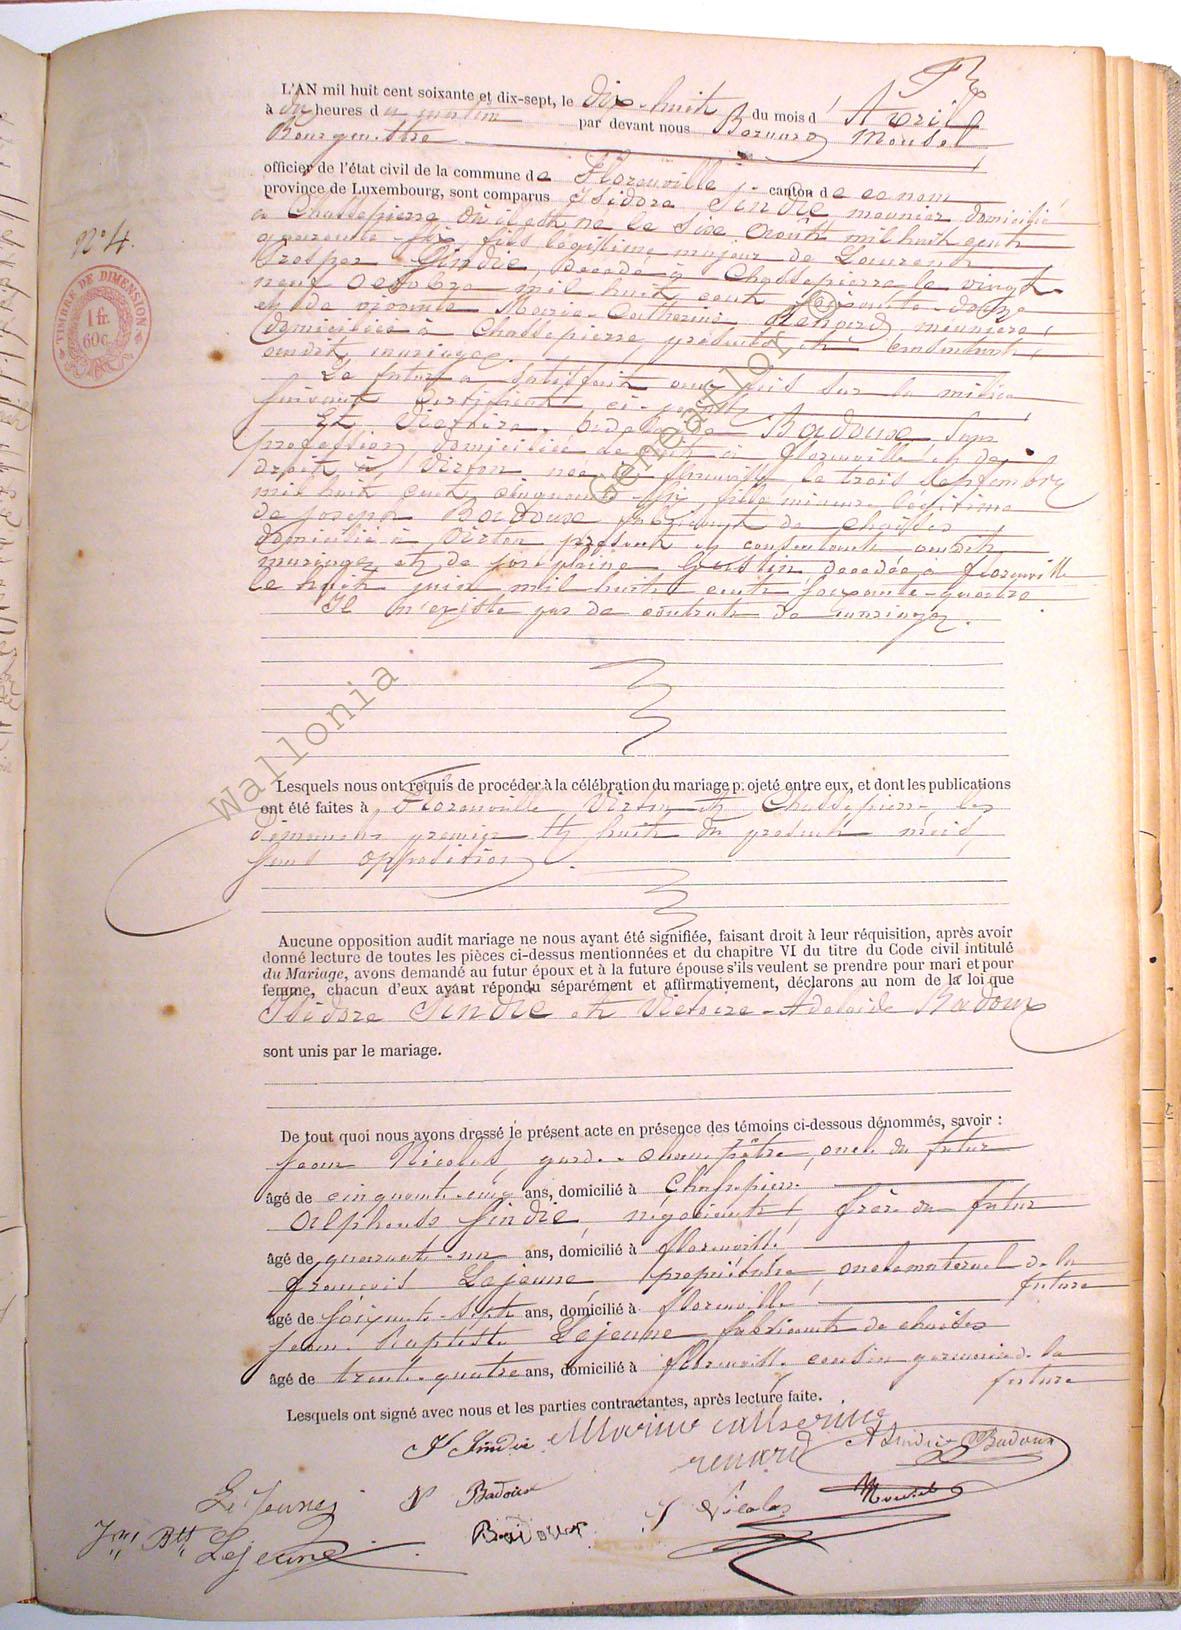 L'AN mil huit cent soixante et dix-sept, le dix-huit du mois d'Avril
à dix heures du matin par devant nous Bernard Mousel
Bourgmestre
officier de l'état civil de la commune de Florenville, canton de ce nom
province de Luxembourg, sont comparus Isidore Sindic, meunier domicilié
N° 4.
à Chassepierre où il est né le six Août mil huit cent
quarante-six, fils légitime majeur de Laurent
Prosper Sindic, décédé à Chassepierre le vingt
neuf Octobre mil huit cent soixante-douze
et de vivante Marie-Catherine Renard, meunière,
domiciliée à Chassepierre, présente et consentante
audit mariage.
TIMBRE DE DIMENSION
1 fr.
60c.
Le futur a satisfait aux lois sur la milice
suivant certificat ci-joint
Et Victoire Adelaïde Badoux, sans
profession, domiciliée de fait à Florenville et de
droit à Virton, née à Florenville le trois Septembre
mil huit cent cinquante-six, fille mineure légitime
de Joseph Badoux fabricant de chaises,
domicilié à Virton présent et consentant audit
mariage, et de Joséphine décédée à Florenville
le huit juin mil huit cent soixante-quatre
Il n'existe pas de contrat de mariage.
Wallonia genealor
Lesquels nous ont requis de procéder à la célébration du mariage projeté entre eux, et dont les publications
ont été faites à Florenville, Virton et Chassepierre les
dimanches premier et huit du présent mois,
sans opposition.
Aucune opposition audit mariage ne nous ayant été signifiée, faisant droit à leur réquisition, après avoir
donné lecture de toutes les pièces ci-dessus mentionnées et du chapitre VI du titre du Code civil intitulé
du Mariage, avons demandé au futur époux et à la future épouse s'ils veulent se prendre pour mari et pour
femme, chacun d'eux ayant répondu séparément et affirmativement, déclarons au nom de la loi que
Isidore Sindic et Victoire-Adelaïde Badoux
sont unis par le mariage.
De tout quoi nous avons dressé le présent acte en présence des témoins ci-dessous dénommés, savoir :
Jean Nicolas, garde-champêtre, oncle du futur
âgé de cinquante-cinq ans, domicilié à Chassepierre
Alphonse Sindic, négociant, frère du futur
âgé de quarante-un ans, domicilié à Florenville
François Lejeune propriétaire, oncle maternel de la
future
âgé de soixante-sept ans, domicilié à Florenville
Jean Baptiste Lejeune fabricant de chaises
âgé de trente-quatre ans, domicilié à Florenville cousin germain de la
future
Lesquels ont signé avec nous et les parties contractantes, après lecture faite.
I Sindic Marie catherine
renard A Sindic Badoux
Lejeune V Badoux J Nicolas Mousel
Jn Bte Lejeune Badoux